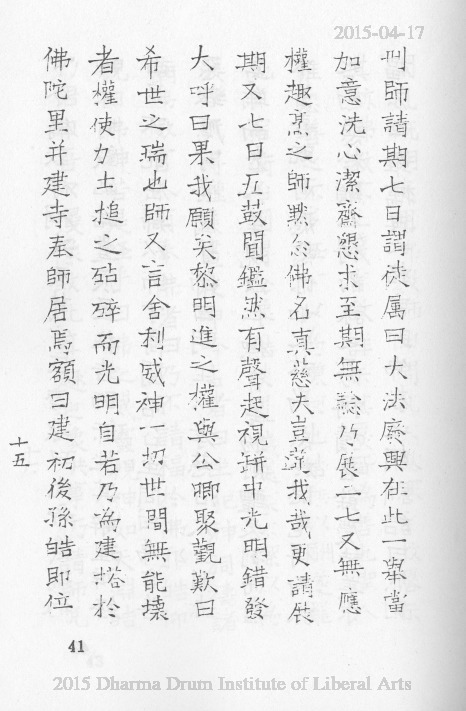 2015-04-17
刑師請期七日謂徒属曰大法廢興在此一舉當
加意洗心潔齋懇求至期無驗乃展二七又無應
權趣烹之師黙念佛名真慈夫豈違我哉更請展
期又七日五鼓聞鏗然有聲起視缾中光明錯發
大呼曰果我願矣黎明進之權與公卿聚觀歎曰
希世之瑞也師又言舍利威神一切世間無能壊
者權使力士搥之砧碎而光明自若乃為建塔於
佛陀里并建寺奉師居焉額曰建初後孫皓即位
十五
41
2015 Dharma Drum Institute of Liberal Arts